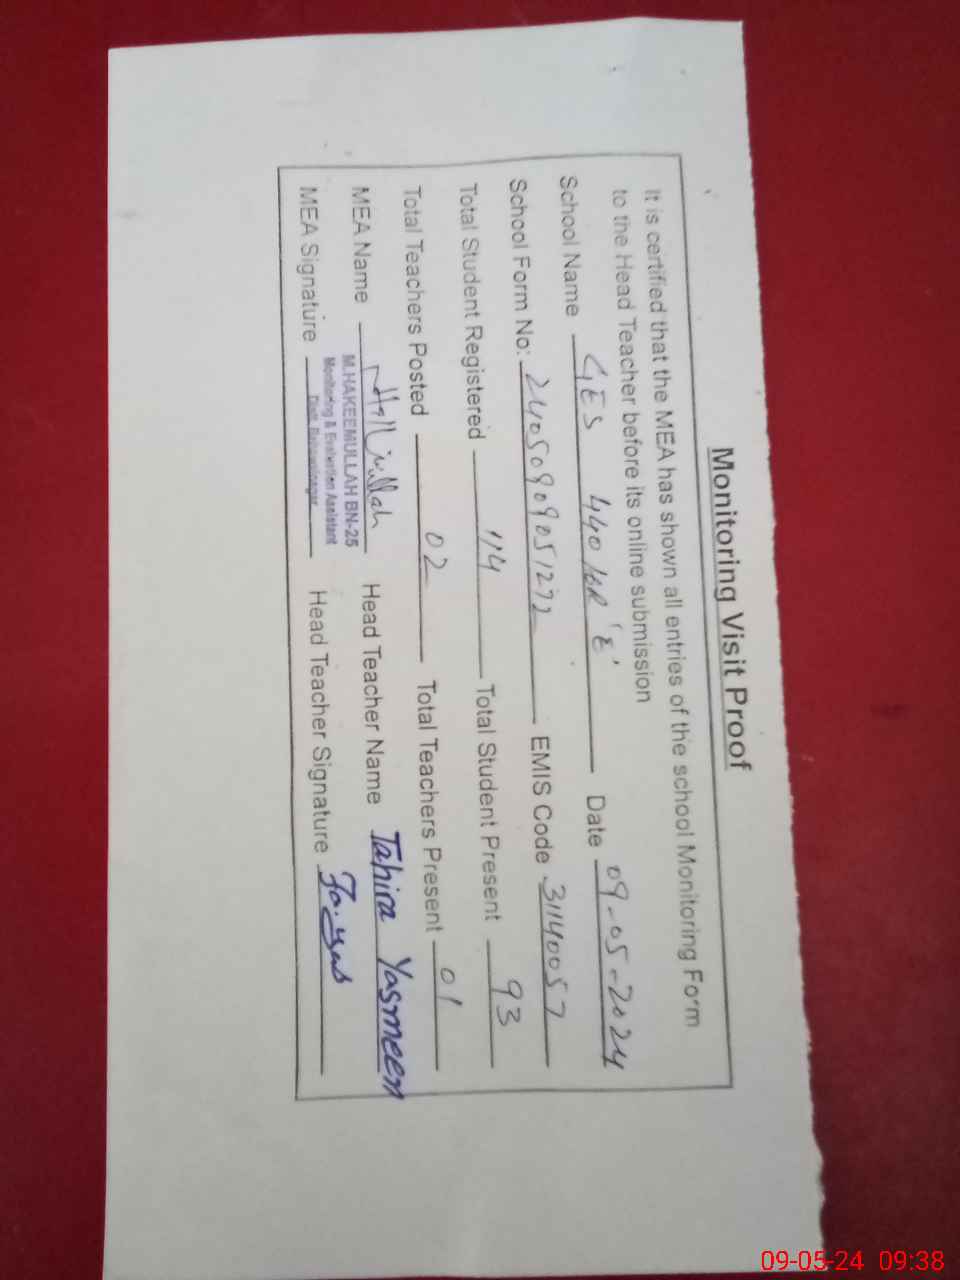 Monitoring Visit Proof
It is certified that the MEA has shown all entries of the school Monitoring Form
to the Head Teacher before its online submission
School Name GES 440 6R 'E' Date 09-05-2024
School Form No: 24050909051272 EMIS Code 31140057
Total Student Registered 114 Total Student Present 93
Total Teachers Posted 02 Total Teachers Present 01
MEA Name Head Teacher Name Tahira Yasmeen
M.HAKEEMULLAH BN-25
Monitoring & Evaluation Assistant
Distt. Bahawalnagar
MEA Signature Head Teacher Signature
09-05-24 09:38